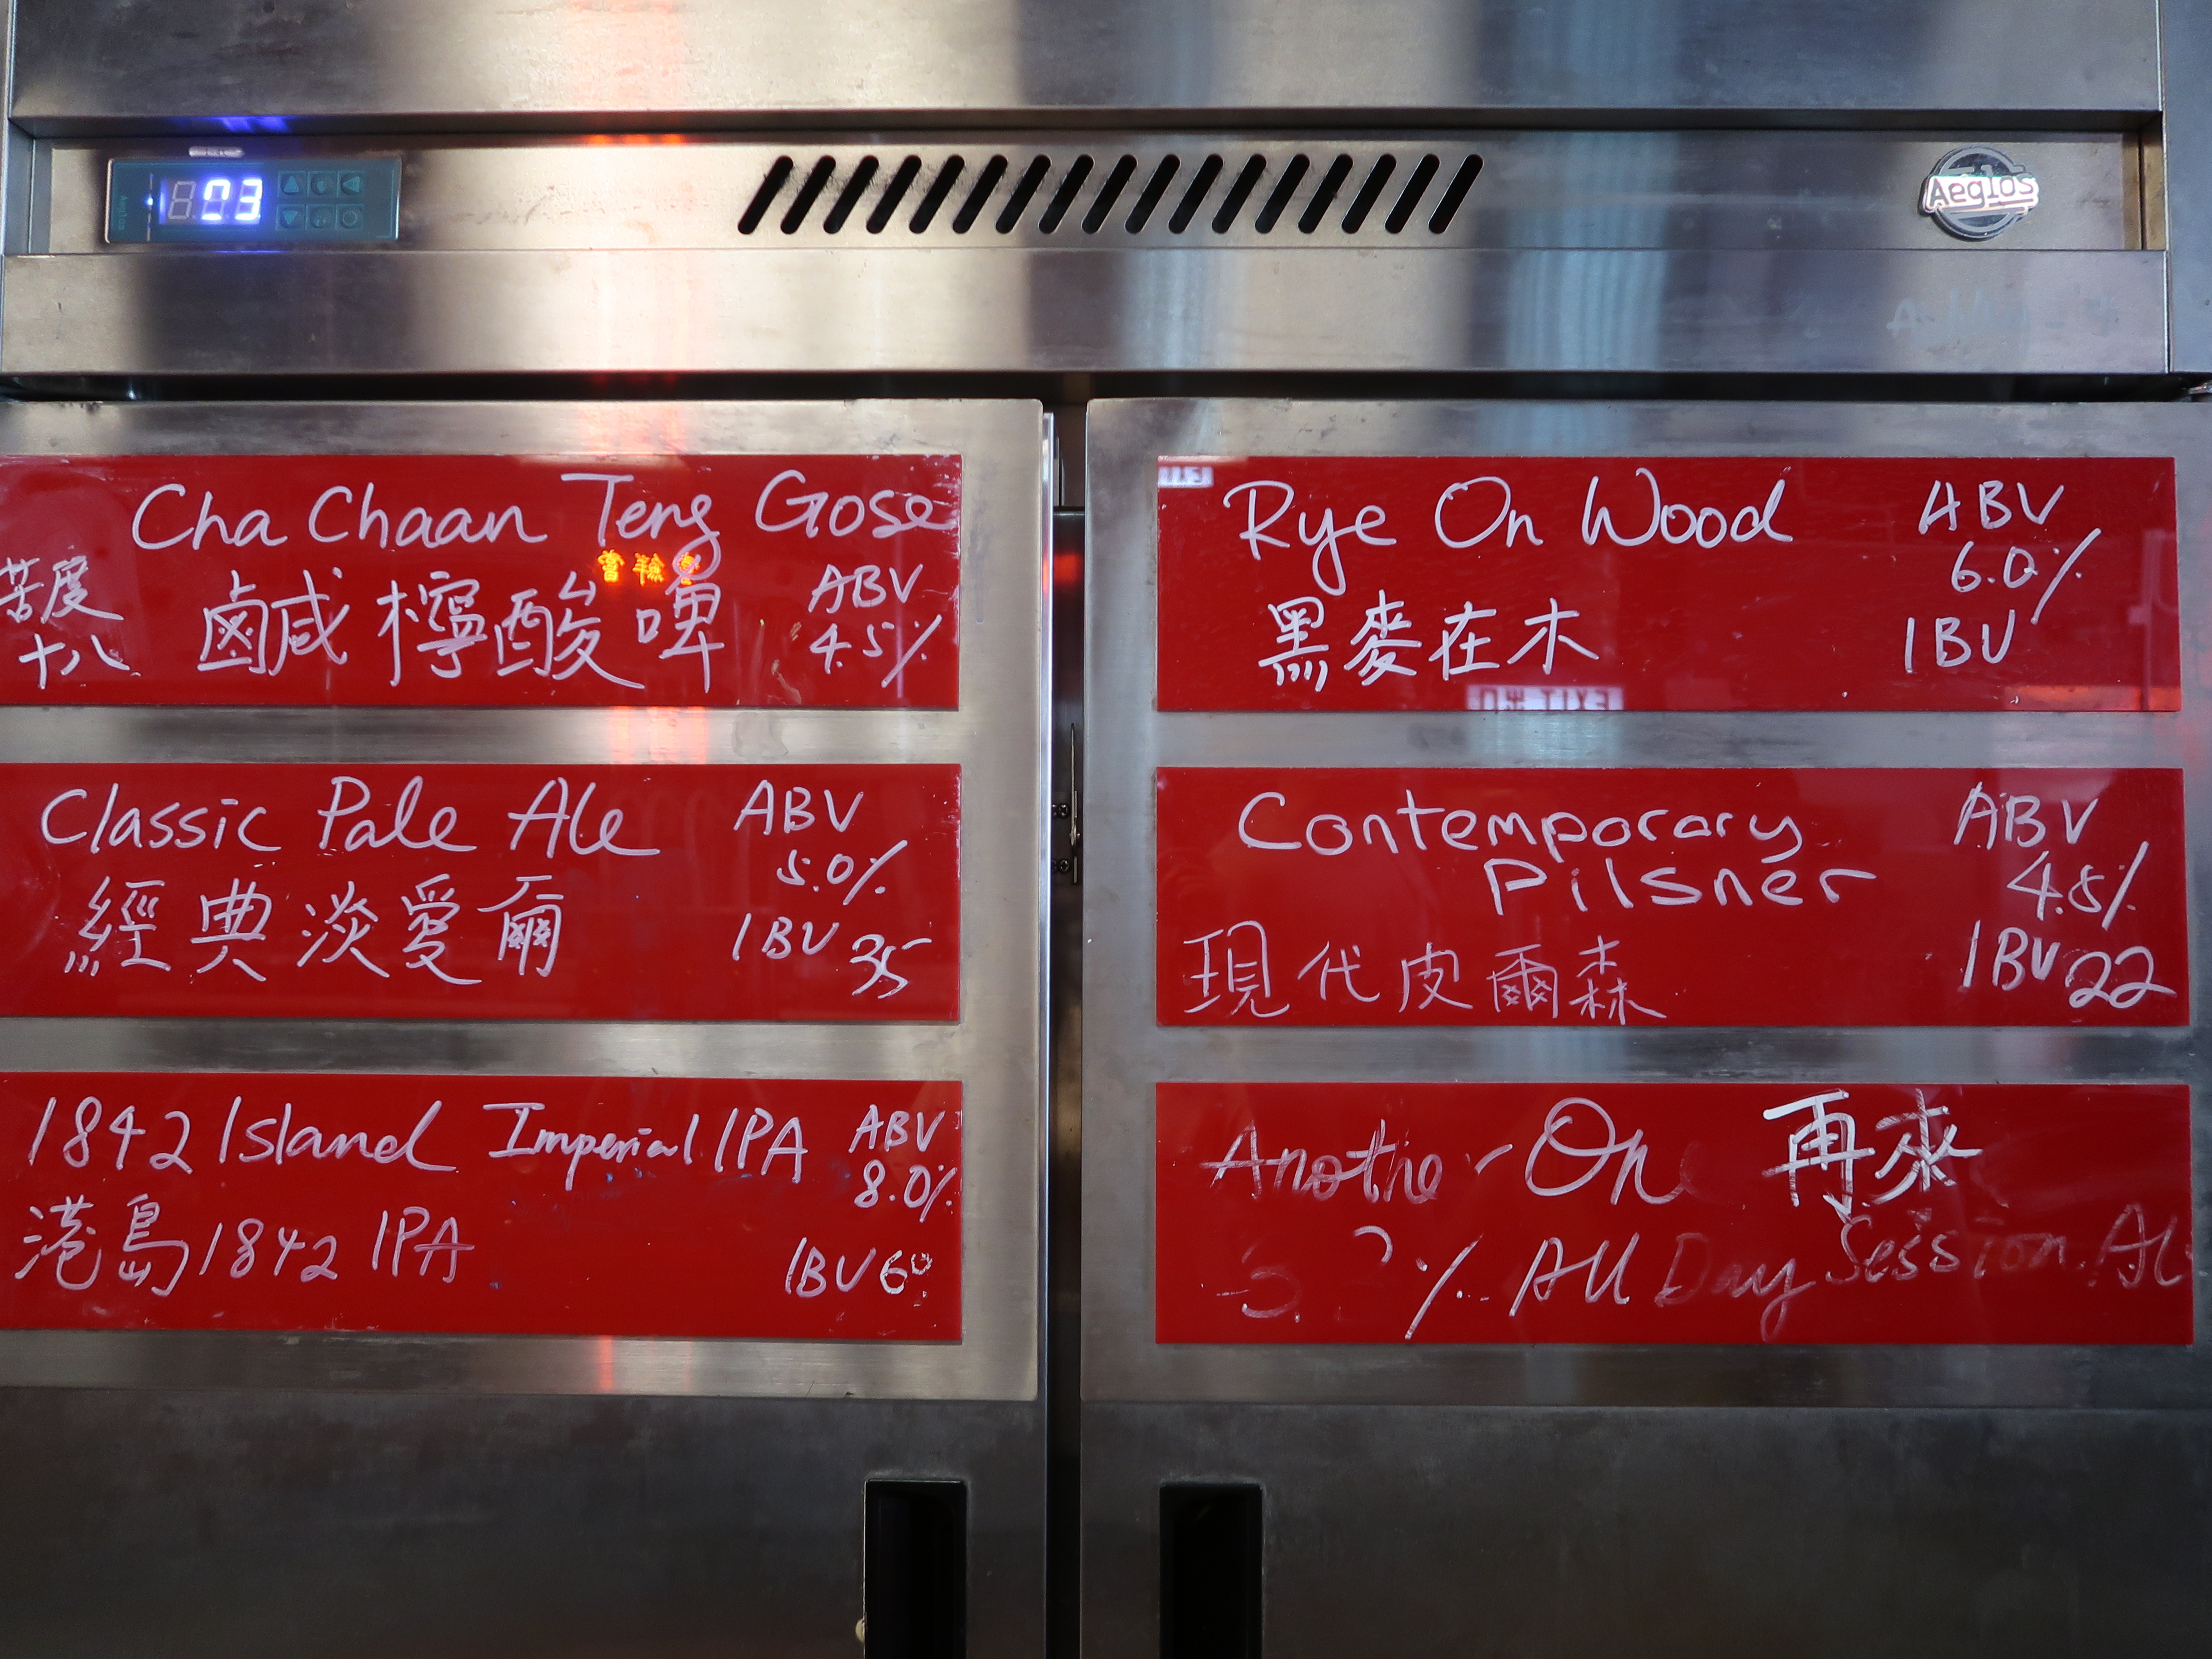 03
Aeglos
Cha Chaan Teng Gose
苦度
十八
鹹檸酸啤
ABV
4.5%
Classic Pale Ale
經典淡愛爾
ABV
5.0%
IBU 35
1842 Island Imperial IPA
港島1842 IPA
ABV
8.0%
IBU 60
Rye On Wood
黑麥在木
ABV
6.0%
IBU
Contemporary
Pilsner
現代皮爾森
ABV
4.8%
IBU 22
Another One 再來
% All Day Session